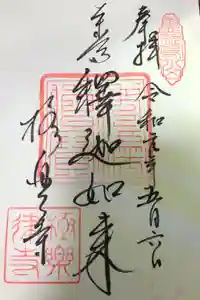 奉拝 令和元年五月六日
本尊 釋迦如来
極楽寺
極樂律寺